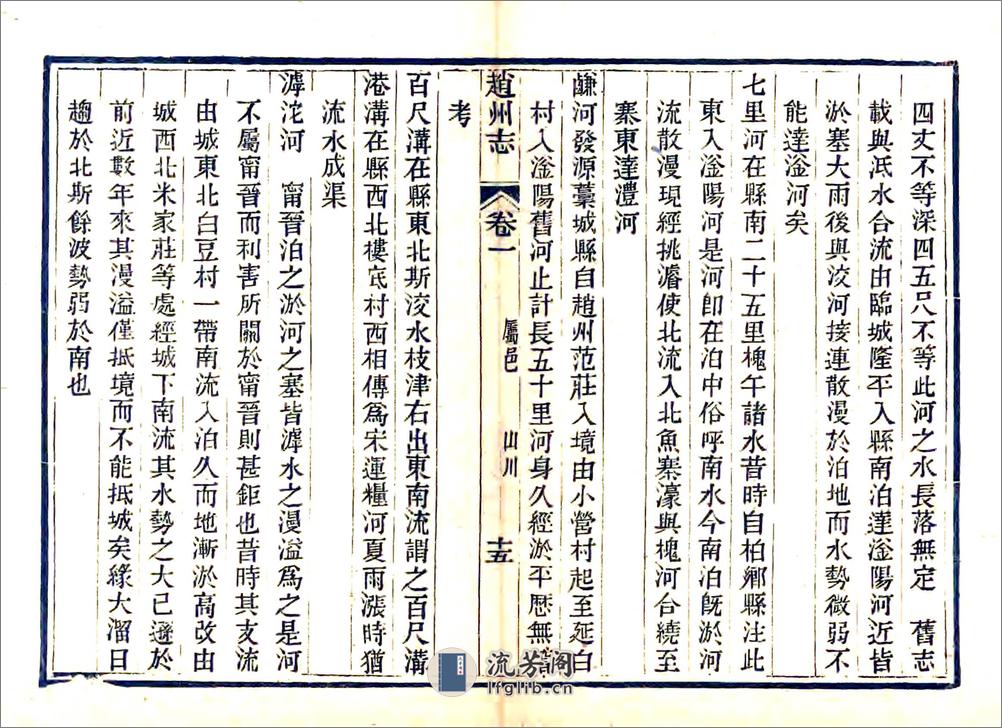 四丈不等深四五尺不等此河之水長落無定　舊志
載與泜水合流由臨城隆平入縣南泊達滏陽河近皆
淤塞大雨後與洨河接連散漫於泊地而水勢微弱不
能達滏河矣
七里河在縣南二十五里槐午諸水昔時自柏鄉縣注此
東入滏陽河是河卽在泊中俗呼南水今南泊旣淤河
流散漫現經挑濬使北流入北魚寨濠與槐河合繞至
寨東達澧河
䶢河發源藁城縣自趙州范莊入境由小營村起至延白
村入滏陽舊河止計長五十里河身久經淤平歷無
考
趙州志
卷一
屬邑
山川
十五
百尺溝在縣東北斯洨水枝津右出東南流謂之百尺溝
港溝在縣西北樓底村西相傳爲宋運糧河夏雨漲時猶
流水成渠
滹沱河　甯晉泊之淤河之塞皆滹水之漫溢爲之是河
不屬甯晉而利害所關於甯晉則甚鉅也昔時其支流
由城東北白豆村一帶南流入泊久而地漸淤高改由
城西北米家莊等處經城下南流其水勢之大已遜於
前近數年來其漫溢僅抵境而不能抵城矣緣大溜日
趨於北斯餘波勢弱於南也
流芳閣
lfglib.cn